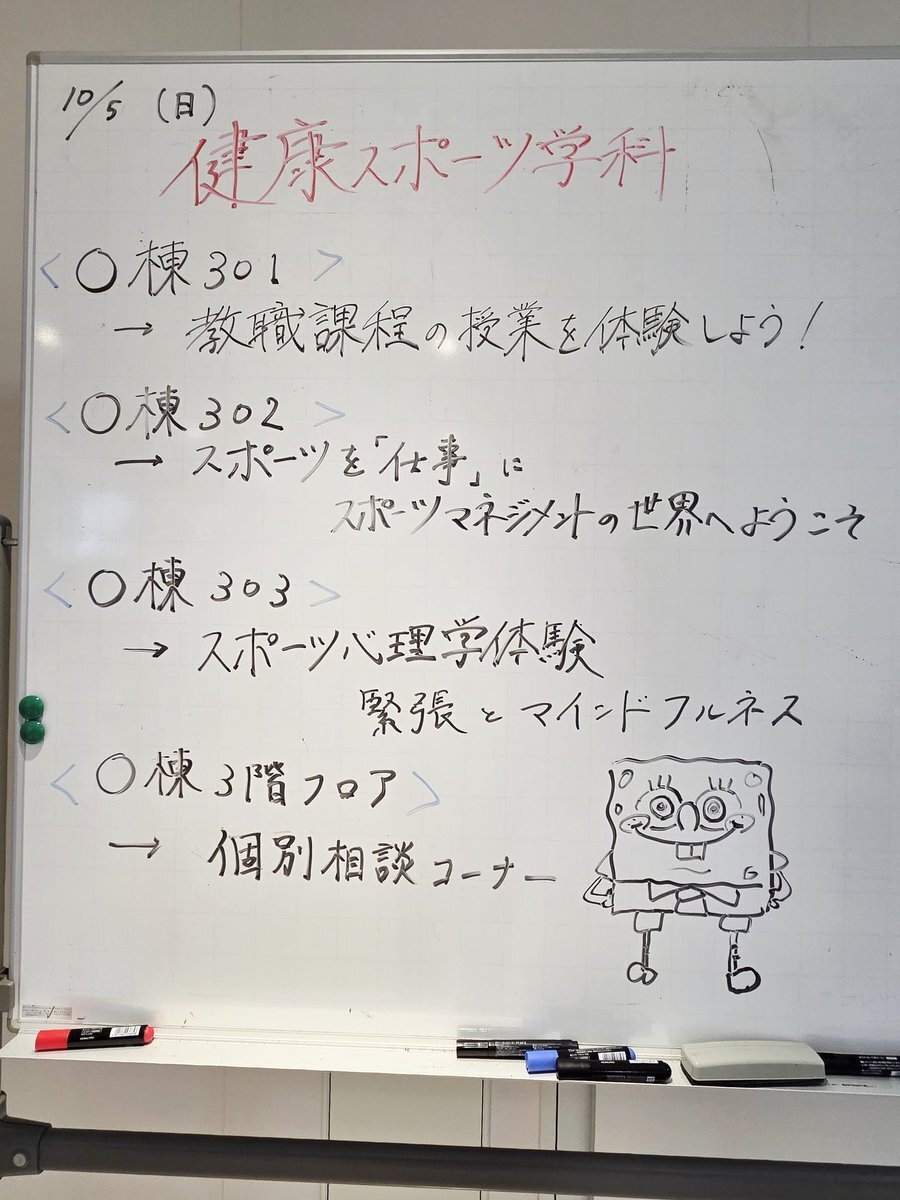 10/5 (日)
健康スポーツ学科
<〇棟301>
→ 教職課程の授業を体験しよう!
<〇棟302>
→ スポーツを「仕事」に
スポーツマネジメントの世界へようこそ
<〇棟303>
→ スポーツ心理学体験
緊張とマインドフルネス
<〇棟3階フロア>
→ 個別相談コーナー